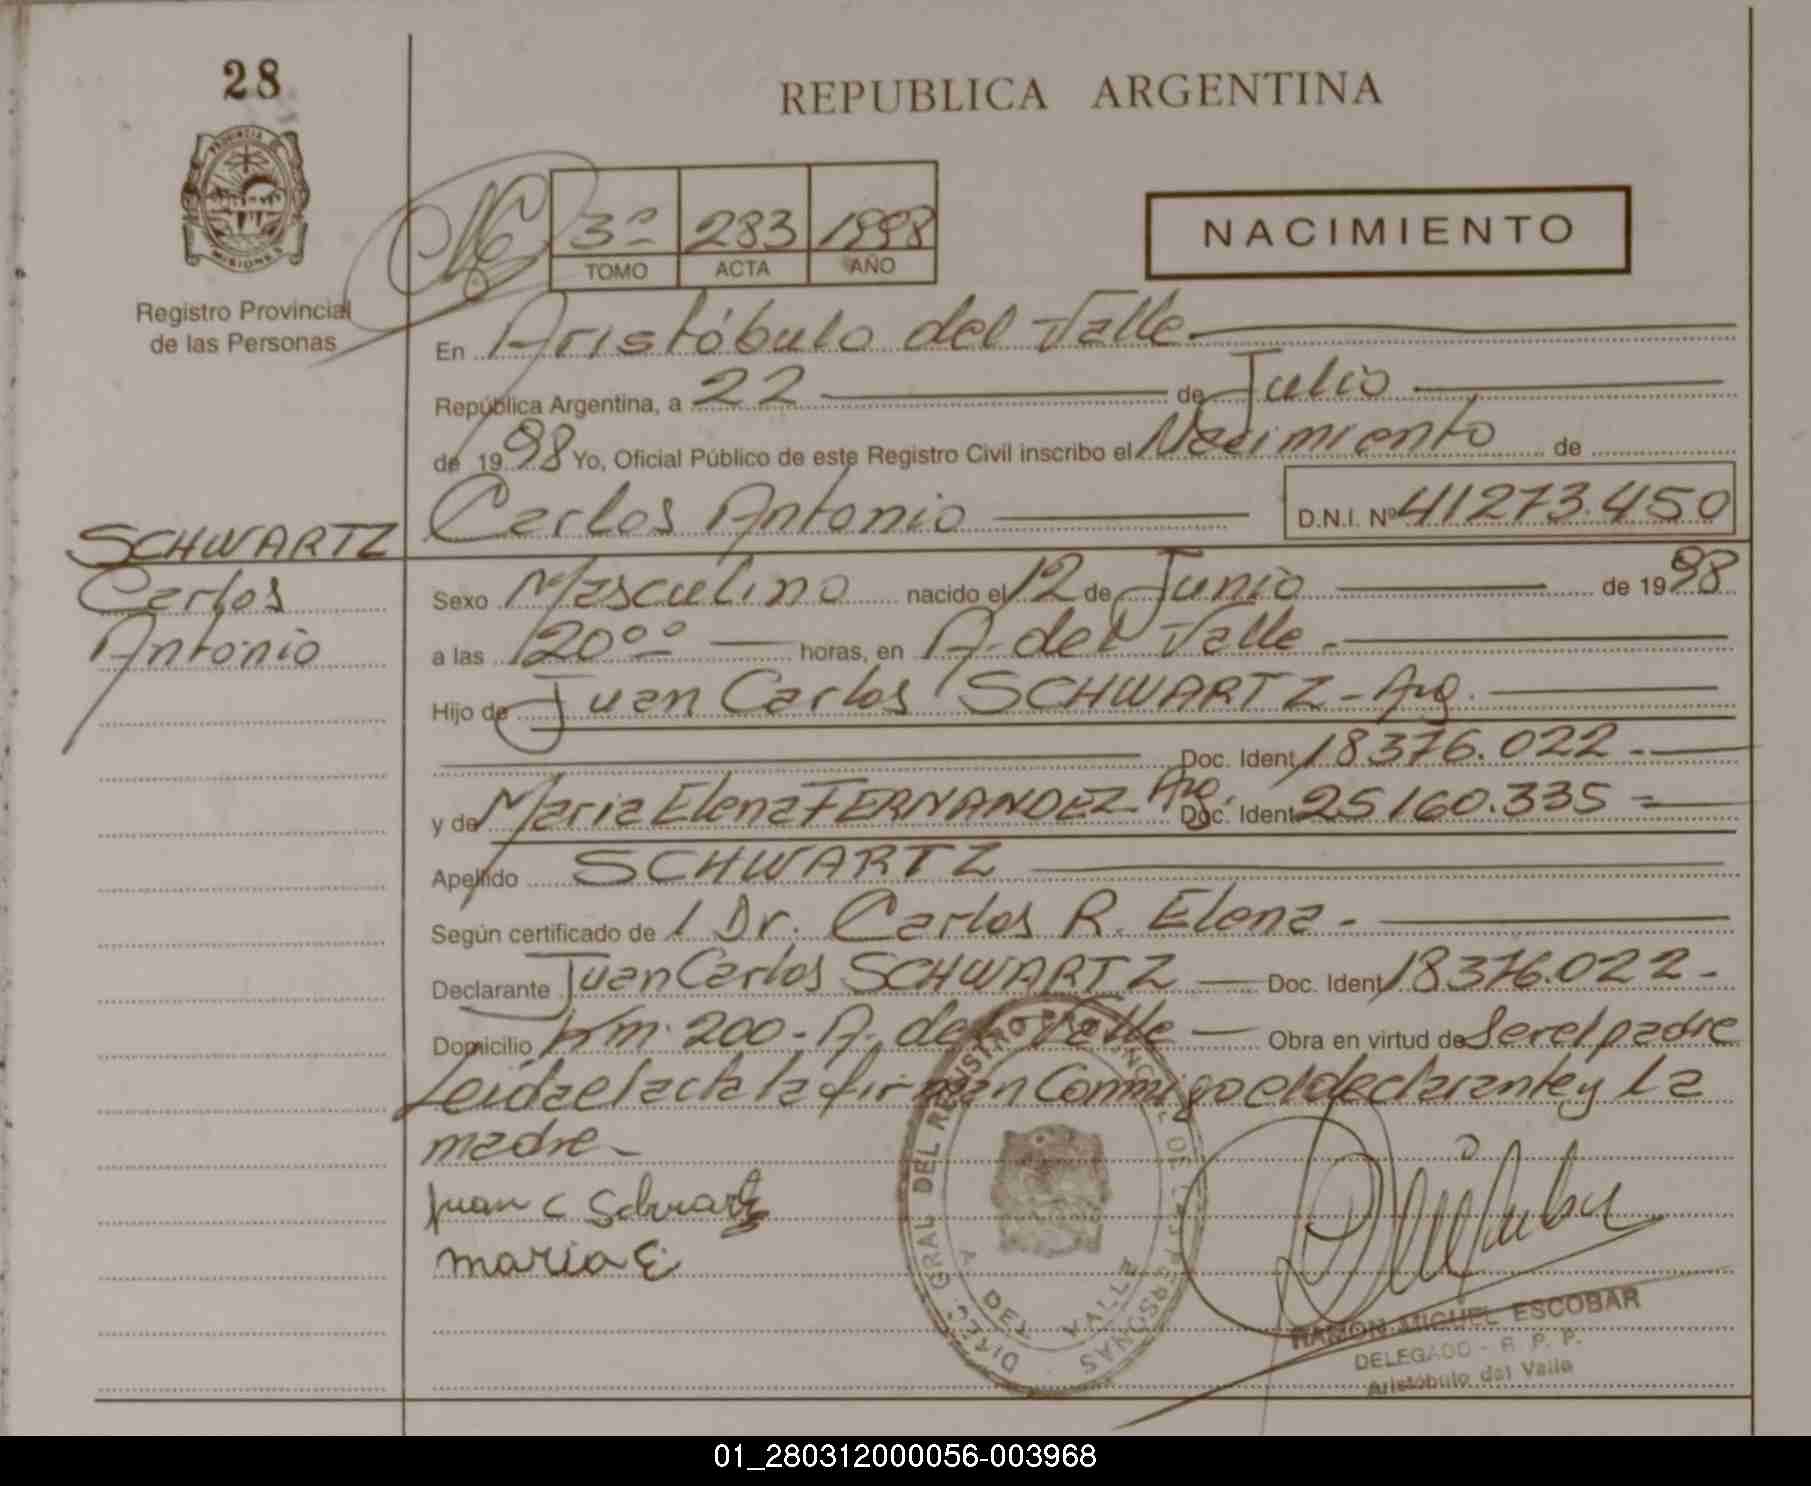 28
PROVINCIA DE
MISIONES
Registro Provincial
de las Personas
REPUBLICA ARGENTINA
3º 283 1998
TOMO ACTA AÑO
NACIMIENTO
En Aristóbulo del Valle
República Argentina, a 22 de Julio
de 1998 Yo, Oficial Público de este Registro Civil inscribo el Nacimiento de
Carlos Antonio D.N.I. Nº 41273.450
SCHWARTZ
Carlos
Antonio
Sexo Masculino nacido el 12 de Junio de 1998
a las 20ºº horas, en A. del Valle.-
Hijo de Juan Carlos SCHWARTZ - Arg.
Doc. Ident. 18376.022.-
y de Maria Elena FERNANDEZ Arg. Doc. Ident. 25160.335 =
Apellido SCHWARTZ
Según certificado de 1 Dr. Carlos R. Elena -
Declarante Juan Carlos SCHWARTZ Doc. Ident. 18376.022-
Domicilio Km. 200 - A. del Valle Obra en virtud de Ser el padre
Leida el acta la firman Conmigo el declarante y la
madre-
Juan C Schwartz
maria E.
DIREC. GRAL. DEL REGISTRO PROVINCIAL DE LAS PERSONAS
A. DEL VALLE
RAMON MIGUEL ESCOBAR
DELEGADO - R. P. P.
Aristóbulo del Valle
01_280312000056-003968